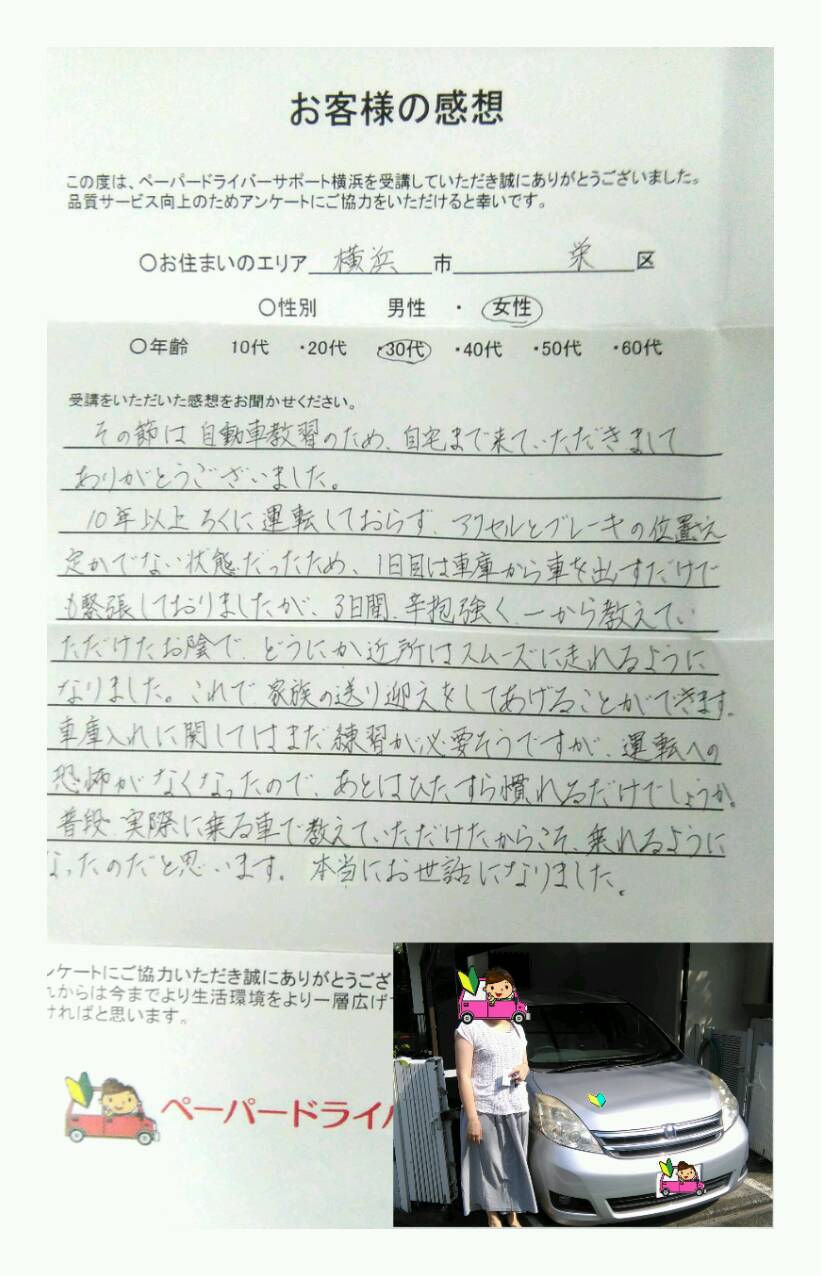 お客様の感想
この度は、ペーパードライバーサポート横浜を受講していただき誠にありがとうございました。
品質サービス向上のためアンケートにご協力をいただけると幸いです。
〇お住まいのエリア 横浜 市 栄 区
〇性別 男性 ・ 女性
〇年齢 10代 ・20代 ・30代 ・40代 ・50代 ・60代
受講をいただいた感想をお聞かせください。
その節は自動車教習のため、自宅まで来ていただきまして
ありがとうございました。
10年以上ろくに運転しておらず、アクセルとブレーキの位置さえ
定かでない状態だったため、1日目は車庫から車を出すだけで
も緊張しておりましたが、3日間、辛抱強く、一から教えてい
ただけたお陰で、どうにか近所はスムーズに走れるように
なりました。これで、家族の送り迎えをしてあげることができます。
車庫入れに関してはまだ練習が必要そうですが、運転への
恐怖がなくなったので、あとはひたすら慣れるだけでしょうか。
普段、実際に乗る車で教えていただけたからこそ、乗れるように
なったのだと思います。本当にお世話になりました。
ンケートにご協力いただき誠にありがとうござ
れからは今までより生活環境をより一層広げ
ければと思います。
ペーパードライバ